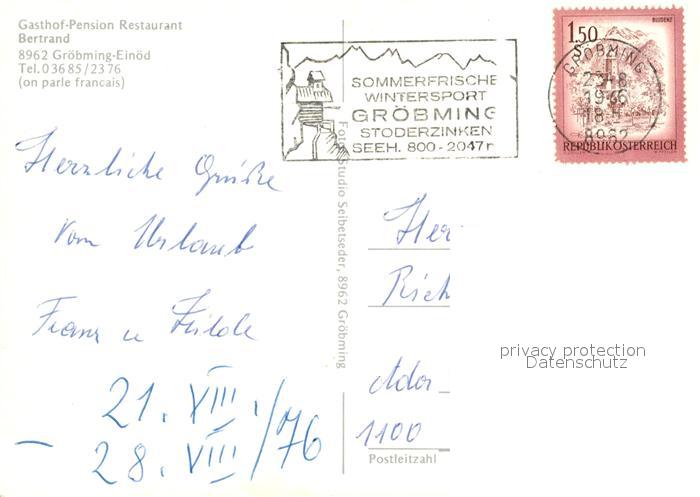 Gasthof-Pension Restaurant
Bertrand
8962 Gröbming-Einöd
Tel. 03685/2376
(on parle francais)
SOMMERFRISCHE
WINTERSPORT
GRÖBMING
STODERZINKEN
SEEH. 800-2047m
1.50
S
BLUDENZ
REPUBLIK ÖSTERREICH
GRÖBMING
8962
Herzliche Grüße
vom Urlaub
Franz u Hilde
21. VIII.
- 28. VIII / 76
Foto Studio Seibetseder, 8962 Gröbming
Her
Rich
1100
Postleitzahl
privacy protection
Datenschutz